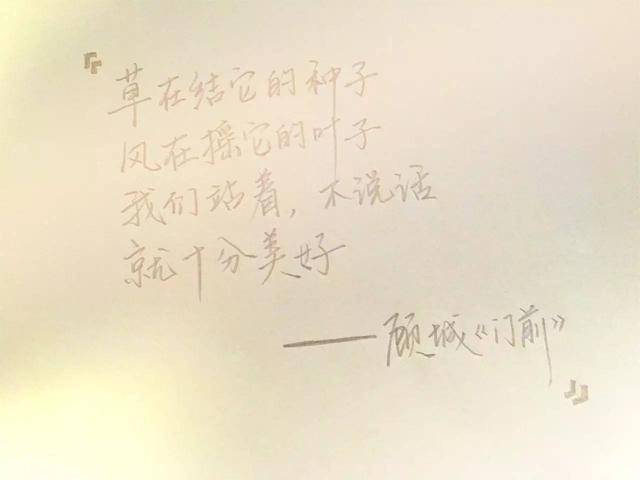 『草在结它的种子
风在摇它的叶子
我们站着，不说话
就十分美好
——顾城《门前》』